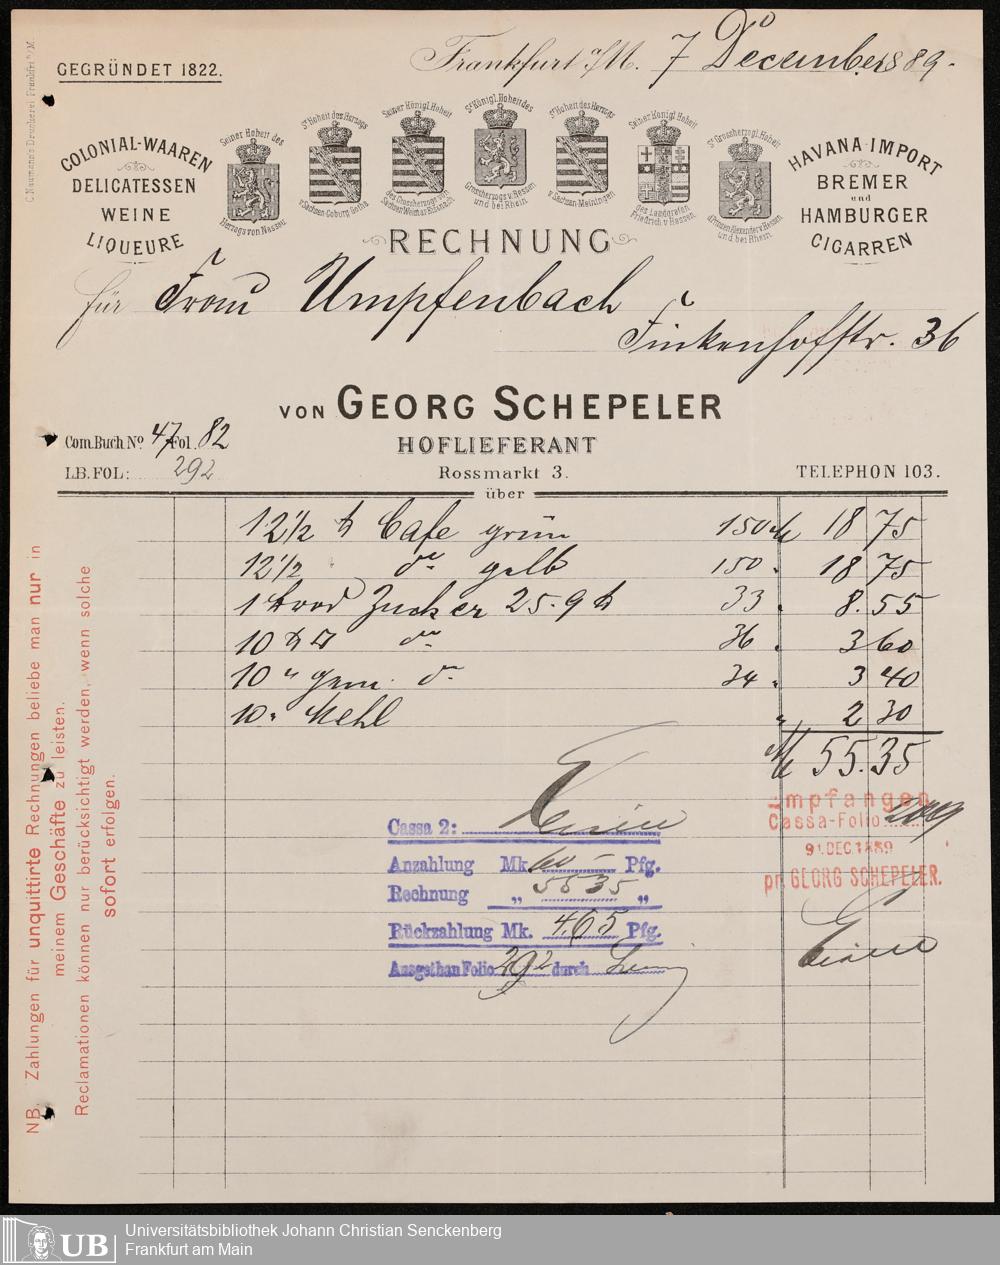 Frankfurt a/M. 7 December 1889.
GEGRÜNDET 1822.
C. Naumann's Druckerei Frankfurt a/M.
COLONIAL-WAAREN
DELICATESSEN
WEINE
LIQUEURE
Seiner Hoheit des Herzogs von Nassau
Sr Hoheit des Herzogs v. Sachsen-Coburg Gotha
Seiner Königl. Hoheit des Grossherzogs von Sachsen Weimar Eisenach
Sr Königl. Hoheit des Grossherzogs v. Hessen und bei Rhein
Sr Hoheit des Herzogs v. Sachsen-Meiningen
Seiner Königl. Hoheit des Landgrafen Friedrich v. Hessen
Sr Grossherzogl. Hoheit d. Prinzen Alexander v. Hessen und bei Rhein
HAVANA-IMPORT
BREMER
und
HAMBURGER
CIGARREN
RECHNUNG
für Frau Umpfenbach
Finkenhofstr. 36
VON GEORG SCHEPELER
HOFLIEFERANT
Com. Buch No 47 Fol. 82
LB. FOL: 292
Rossmarkt 3.
TELEPHON 103.
über
12 1/2 ℔ Cafe grün 150 M 18 75
12 1/2 do gelb 150 " 18 75
1 Brod Zucker 25.9 ℔ 33 " 8.55
10 ℔ do 36 " 3 60
10 " gem. do 34 " 3 40
10 " Mehl " 2 30
M 55.35
Empfangen
Cassa-Folio
9 DEC. 1889
pr. GEORG SCHEPELER.
Cassa 2:
Anzahlung Mk. 60 – Pfg.
Rechnung „ 55 35 „
Rückzahlung Mk. 4.65 Pfg.
Ausgethan Folio 292 durch
NB. Zahlungen für unquittirte Rechnungen beliebe man nur in
meinem Geschäfte zu leisten.
Reclamationen können nur berücksichtigt werden, wenn solche
sofort erfolgen.
UB
Universitätsbibliothek Johann Christian Senckenberg
Frankfurt am Main